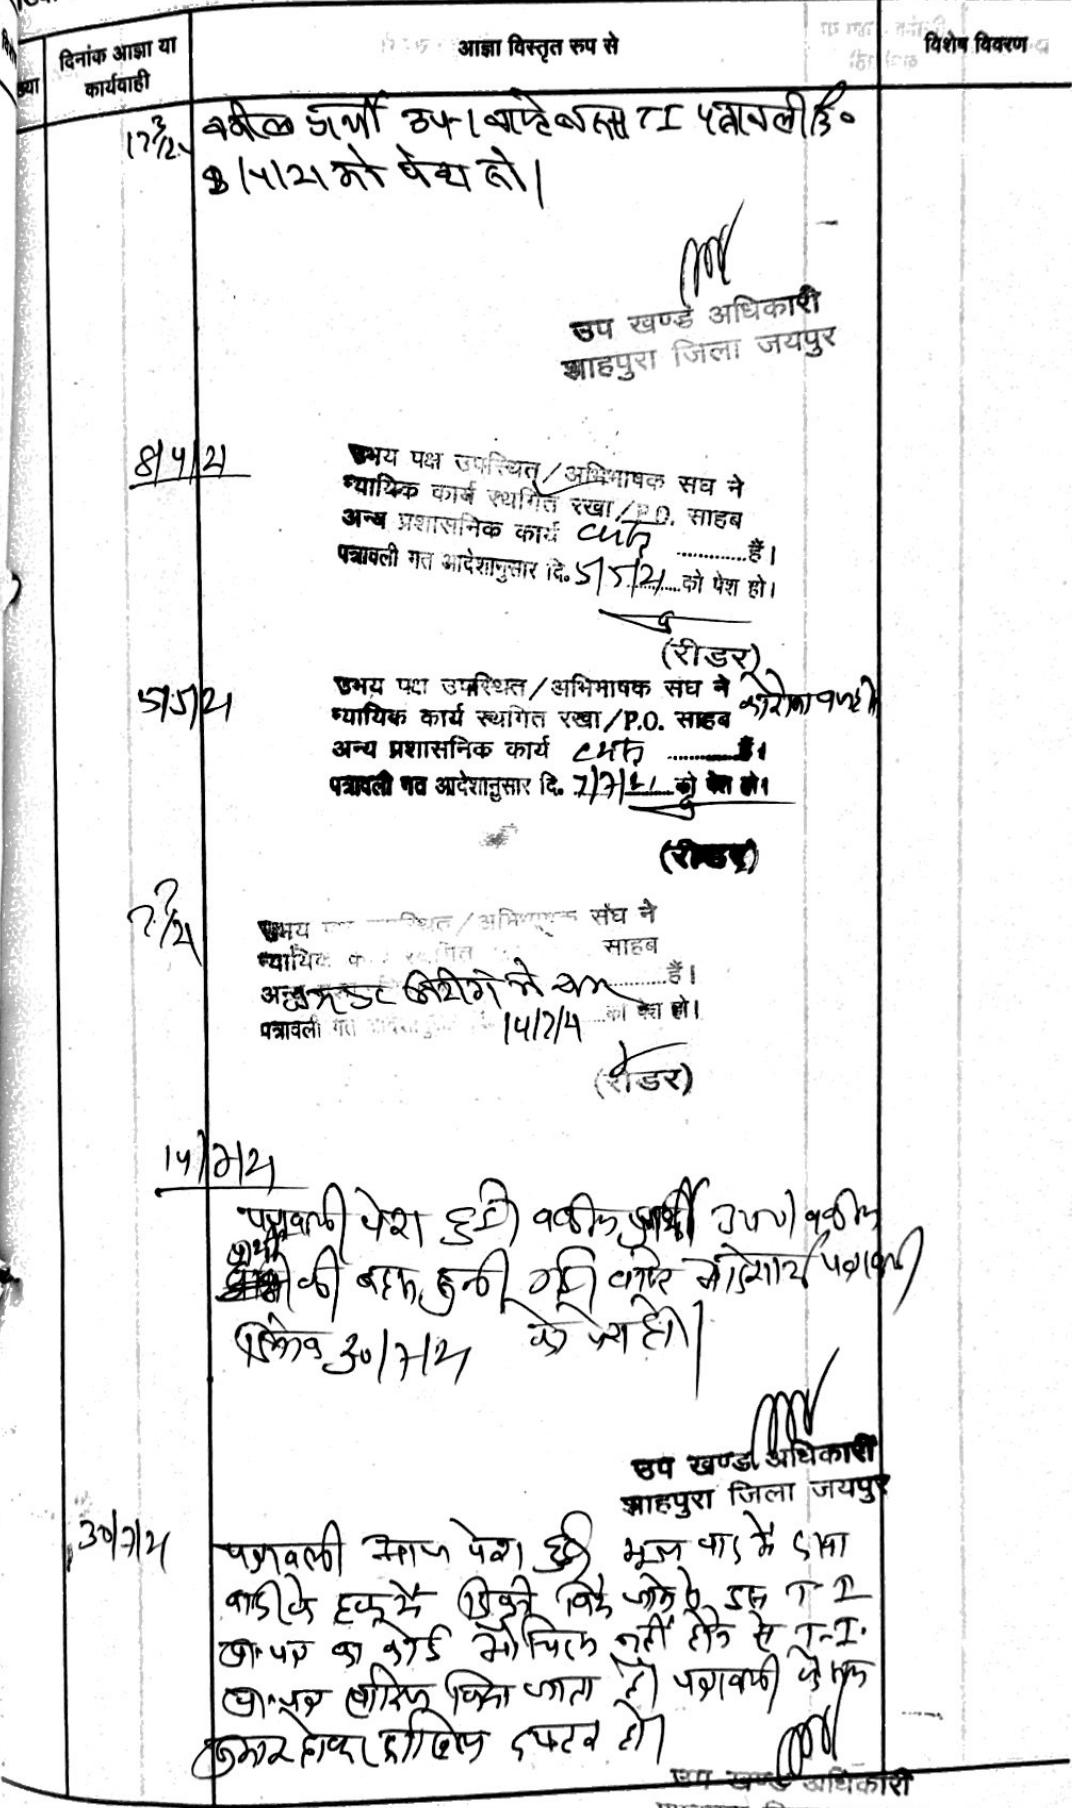 दिनांक आज्ञा या
कार्यवाही
आज्ञा विस्तृत रुप से
विशेष विवरण
17/3/21
वकील उप। वास्ते बहस T I पत्रावली दि०
8/4/21 को पेश हो।
उप खण्ड अधिकारी
शाहपुरा जिला जयपुर
8/4/21
उभय पक्ष उपस्थित/अभिभाषक संघ ने
न्यायिक कार्य स्थगित रखा/P.O. साहब
अन्य प्रशासनिक कार्य ............हैं।
पत्रावली गत आदेशानुसार दि. 5/5/21 को पेश हो।
(रीडर)
5/5/21
उभय पक्ष उपस्थित/अभिभाषक संघ ने कोरोना
न्यायिक कार्य स्थगित रखा/P.O. साहब
अन्य प्रशासनिक कार्य ............हैं।
पत्रावली गत आदेशानुसार दि. 7/7/21 को पेश हो।
(रीडर)
7/7/21
उभय संघ ने
न्यायिक साहब
अन्य ............हैं।
पत्रावली गत 14/7/21 को पेश हो।
(रीडर)
14/7/21
पत्रावली पेश हुई। वकील प्रार्थी उप०। वकील
प्रार्थी की बहस सुनी गई। वास्ते आदेशार्थ पत्रावली
दिनांक 30/7/21 को पेश हो।
उप खण्ड अधिकारी
शाहपुरा जिला जयपुर
30/7/21
पत्रावली आज पेश हुई। मूल वाद में दावा
वादी के हक में डिक्री किये जाने से इस T-I
प्रा.पत्र का कोई औचित्य नहीं होने से T-I.
प्रा.पत्र खारिज किया जाता है। पत्रावली फैसल
शुमार होकर दाखिल दफ्तर हो।
उप खण्ड अधिकारी